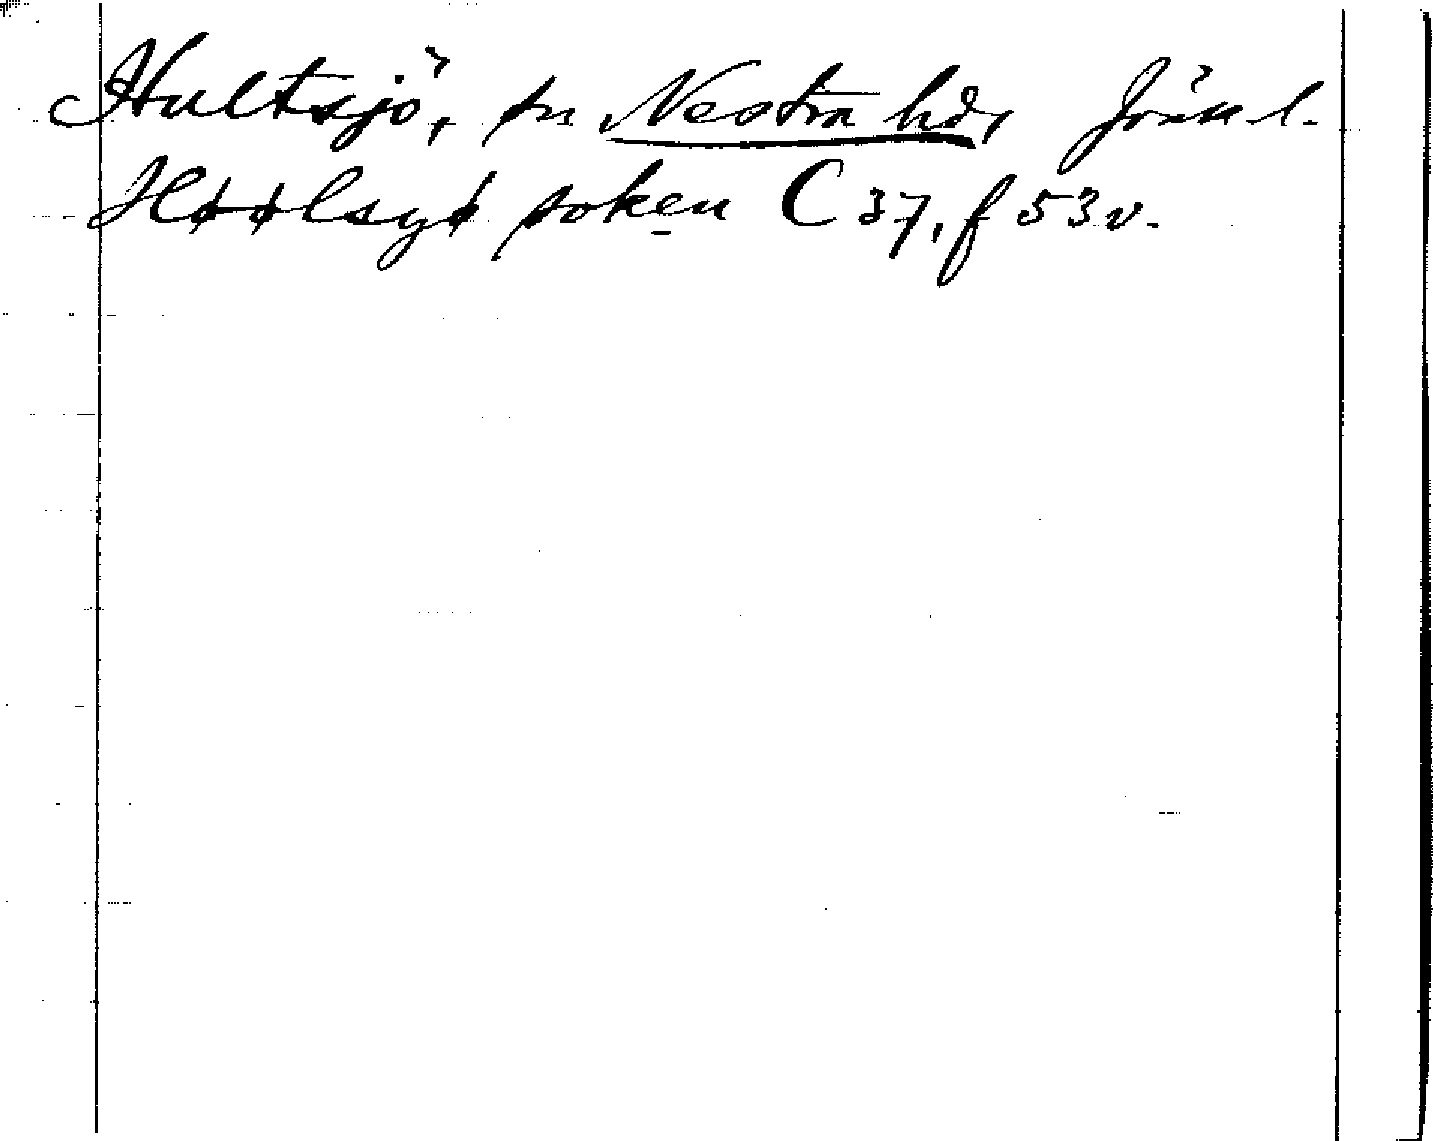 Hultsjö, sn Västra hd, Jönk l.
Høølsyø soken C 37, f 53v.